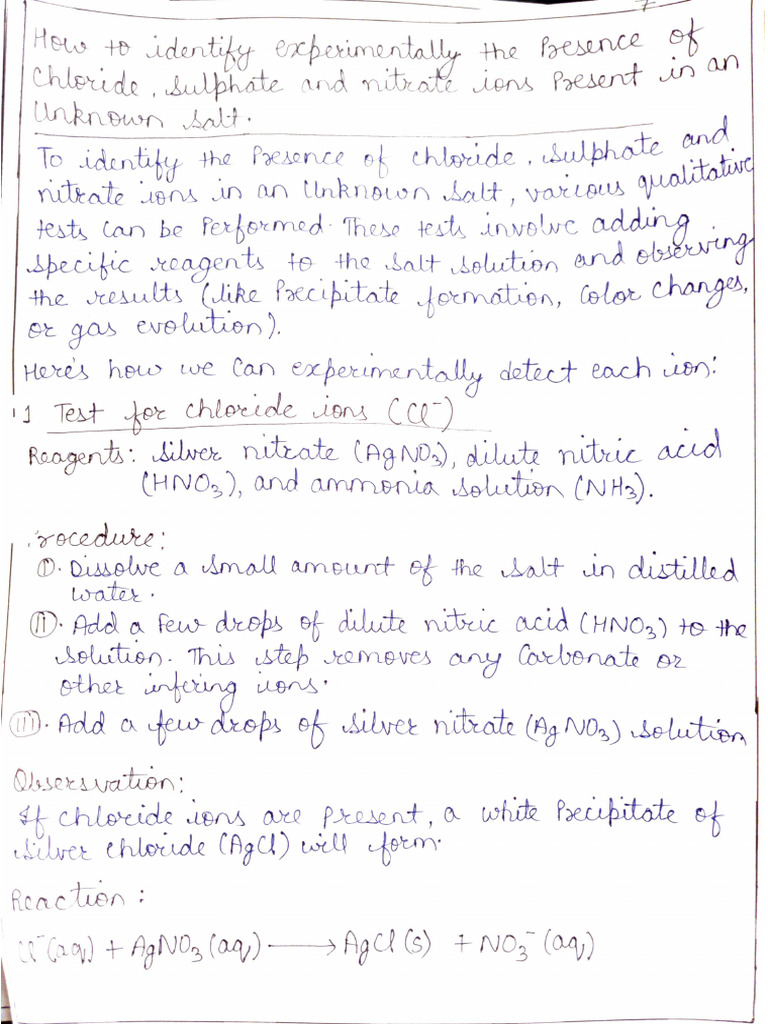 How to identify experimentally the Presence of
Chloride, Sulphate and nitrate ions Present in an
Unknown Salt.
To identify the Presence of chloride, Sulphate and
nitrate ions in an Unknown Salt, various qualitative
tests Can be Performed. These tests involve adding
Specific reagents to the Salt Solution and observing
the results (like Precipitate formation, Color Changes,
or gas evolution).
Here's how we Can experimentally detect each ion:
1 Test for chloride ions (Cl⁻)
Reagents: Silver nitrate (AgNO₃), dilute nitric acid
(HNO₃), and ammonia Solution (NH₃).
rocedure:
(i). Dissolve a Small amount of the Salt in distilled
water.
(ii). Add a Few drops of dilute nitric acid (HNO₃) to the
Solution. This step removes any Carbonate or
other infering ions.
(iii). Add a few drops of Silver nitrate (AgNO₃) Solution
Obsersvation:
If Chloride ions are Present, a white Precipitate of
Silver Chloride (AgCl) will form.
Reaction:
Cl⁻(aq) + AgNO₃(aq) ⟶ AgCl(s) + NO₃⁻(aq)